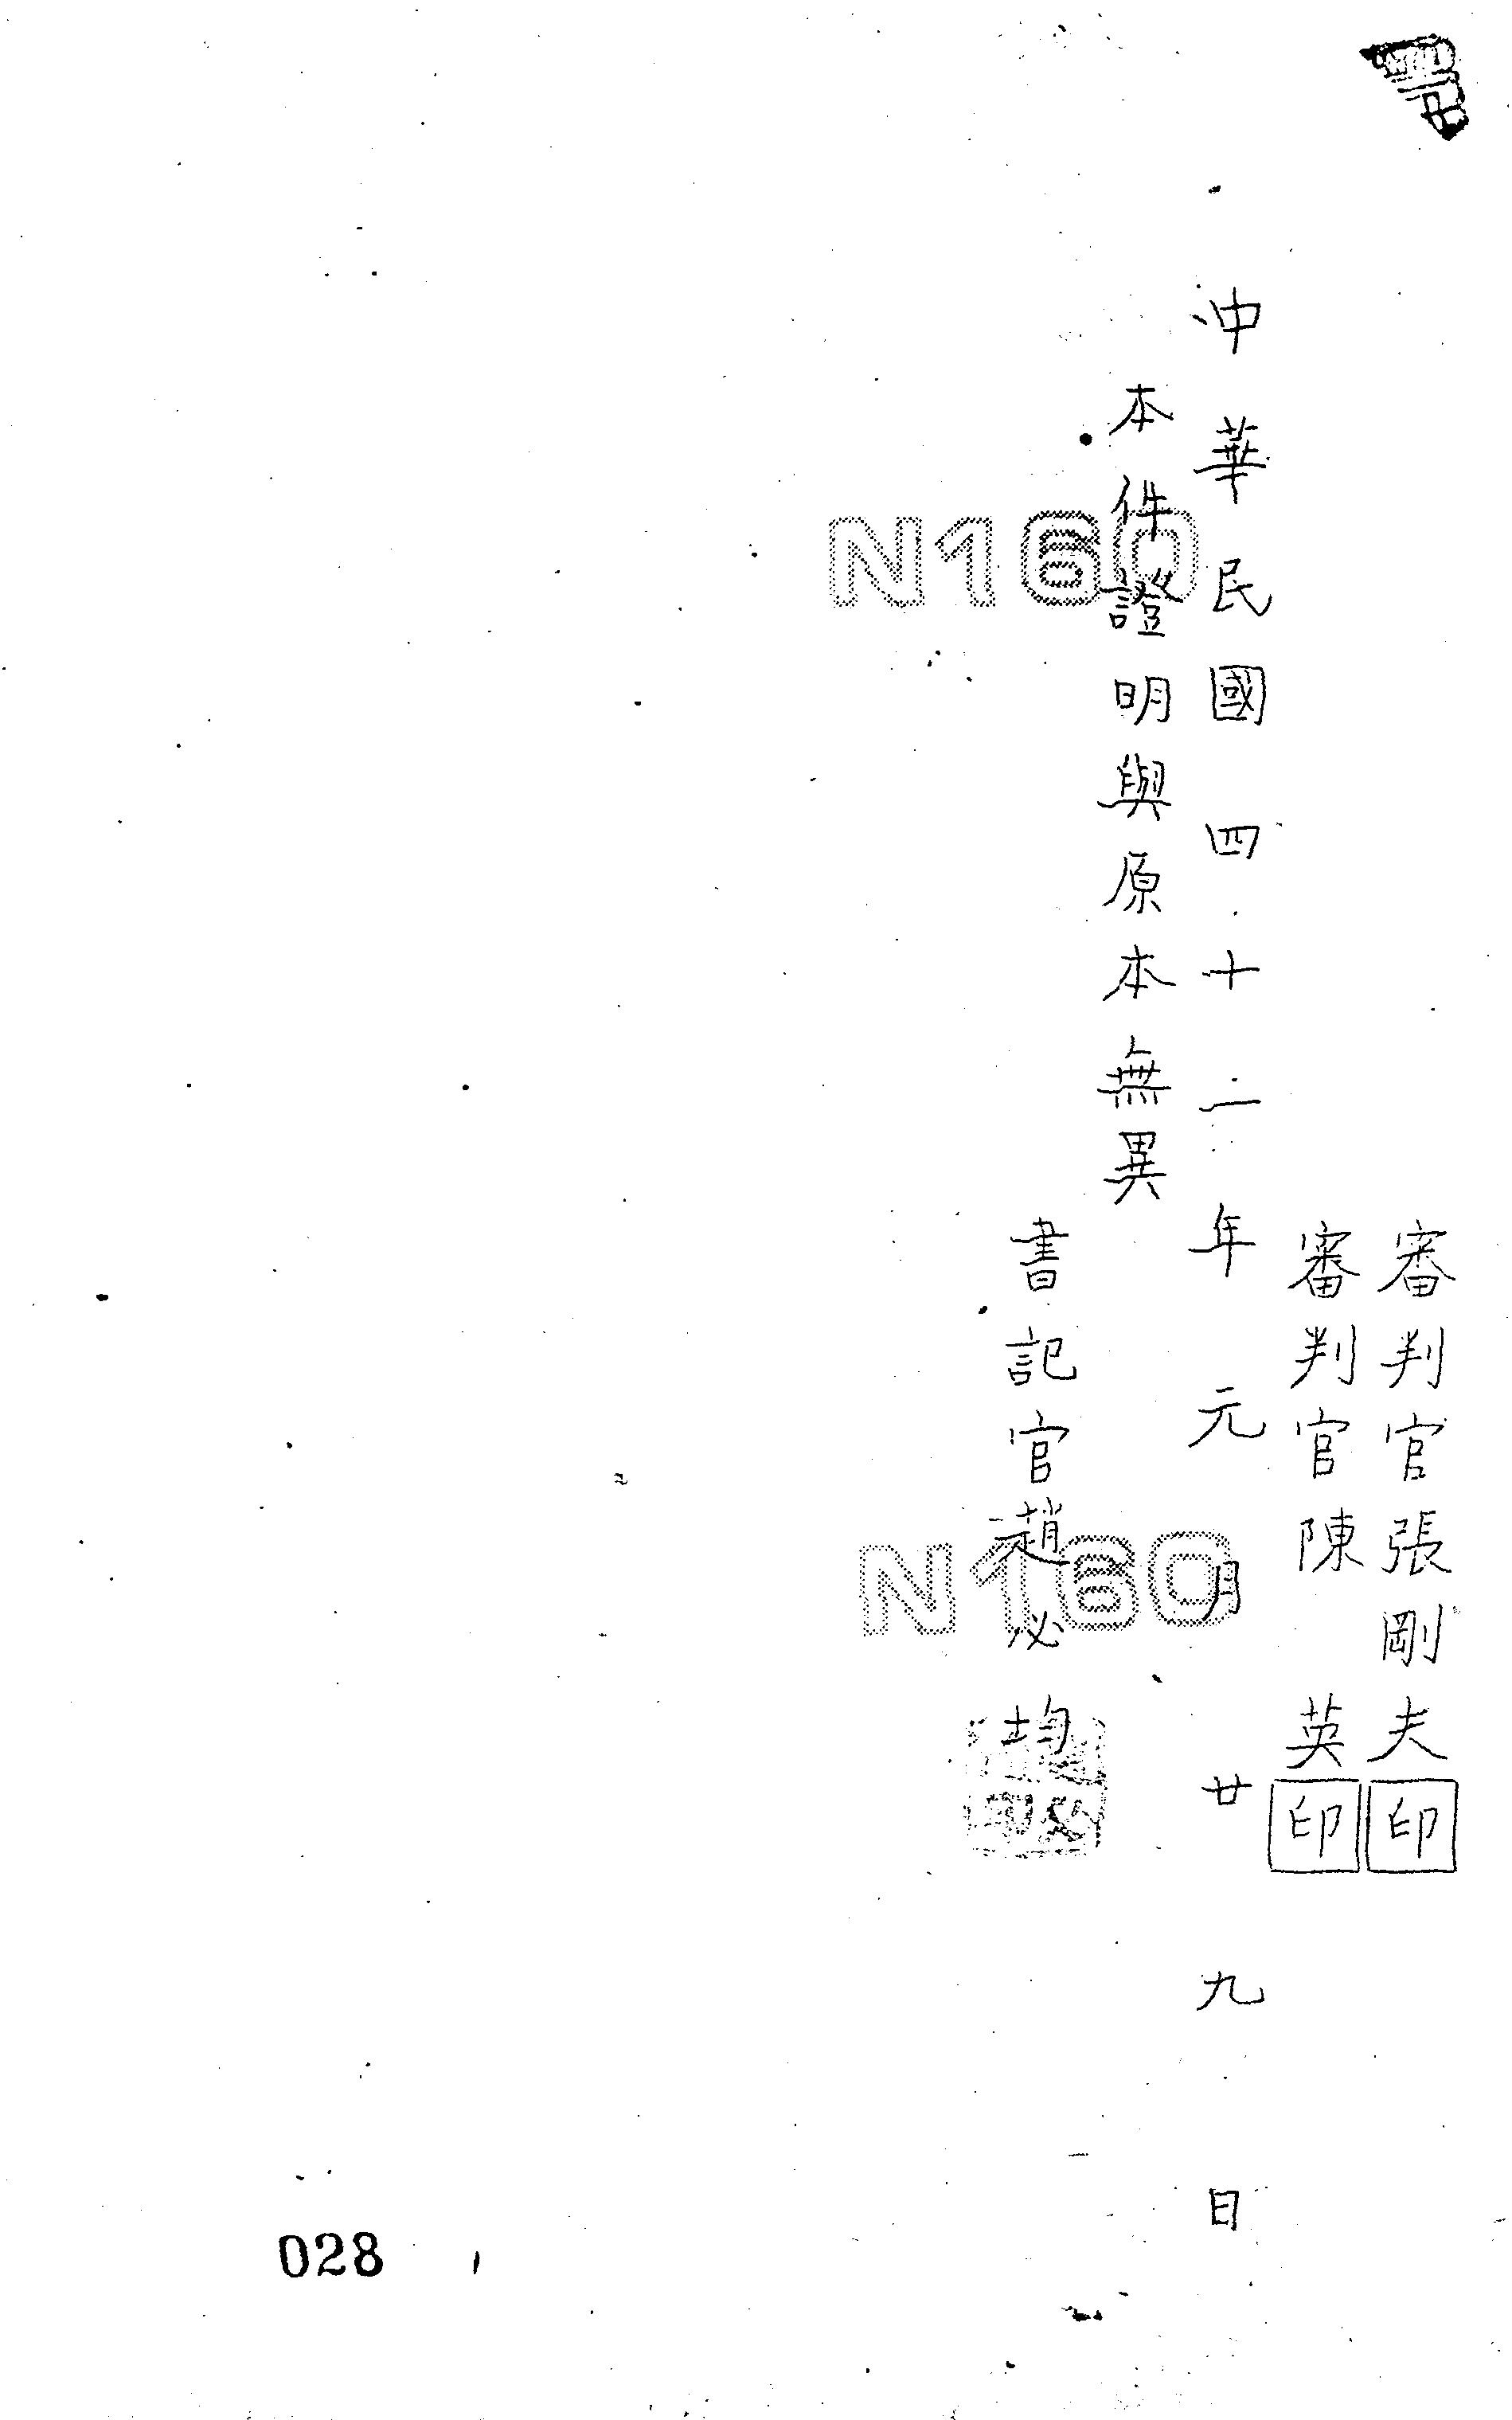 審判官張剛夫印
審判官陳英印
中華民國四十二年元月廿九日
本件證明與原本無異
書記官趙必均
N160
N160
028